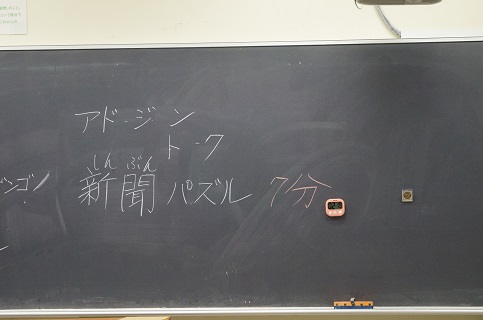 アド・ジン
トーク
しんぶん
新聞パズル 7分
ンゴ